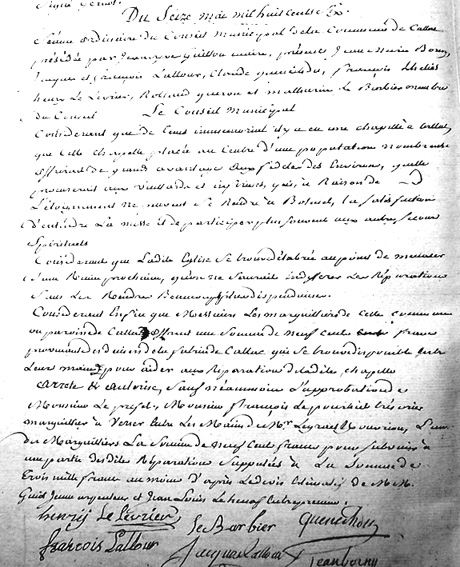 Du Seize mai mil huit cent Six
Séance ordinaire du Conseil municipal de la Commune de Callac
présidée par Jean yves Guillou maire, présents Jean marie
Jacques et françois Lallour, Claude françois
henry Le Lévrier, Rolland et mathurin Le Barbier membres
du Conseil Le Conseil municipal
Considerant que de tems immemorial il y a eu une chapelle à Callac,
que Cette chapelle placée au Centre d'une population nombreuse
offrirait de grands avantages aux fidelles des Environs, quelle
procurerait aux vieillards et infirmes, qui, à Raison de
L'éloignement ne peuvent se Rendre à Botmel, la satisfaction
d'entendre La messe et de participer plus souvent aux autres secours
Spirituels
Considerant que Ladite Eglise se trouve délabrée au point de menacer
d'une Ruine prochaine, qu'on ne saurait différer Les Réparations
Sans Les Rendres Beaucoup plus dispendieuses.
Considerant Enfin que Messieurs Les marguilliers de Cette commune
ou paroisse de Callac offrent une Somme de neuf Cent francs
provenant des deniers de la fabrique de Callac qui se trouve disponible Entre
Leurs mains pour aider aux Réparations de ladite chapelle
arrete et autorise, Sauf néammoins l'approbation de
Monsieur Le prefet, Monsieur françois Le pourhiet trésorier
marguillier à Verser Entre Les Mains de Mr. L'un
des Marguilliers La Somme de neuf Cent francs pour subvenir à
une partie des dites Réparations Supputées à La Somme de
trois mille francs au moins d'après Le devis Estimatif de M.M.
Jeune arpenteur et Jean Louis Le Entrepreneur.
henry Le Lévrier Le Barbier
françois Lallour Jacques Lallour